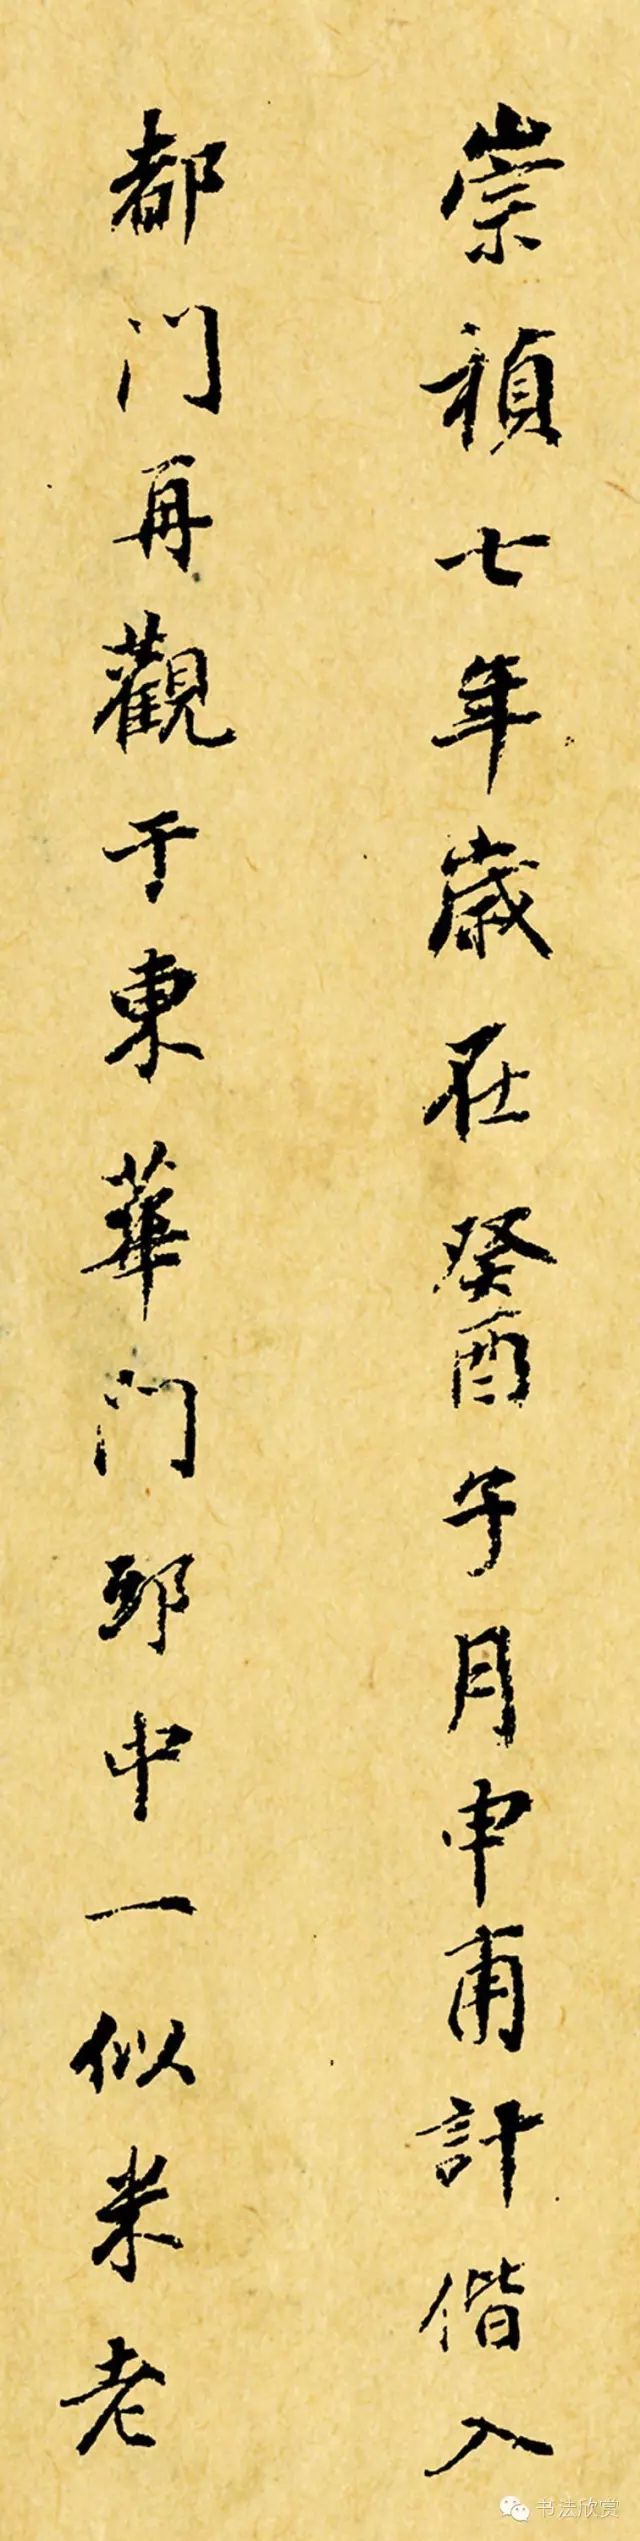 崇禎七年歲在癸酉子月申甫計偕入
都門再觀于東華門邸中一似米老
书法欣赏